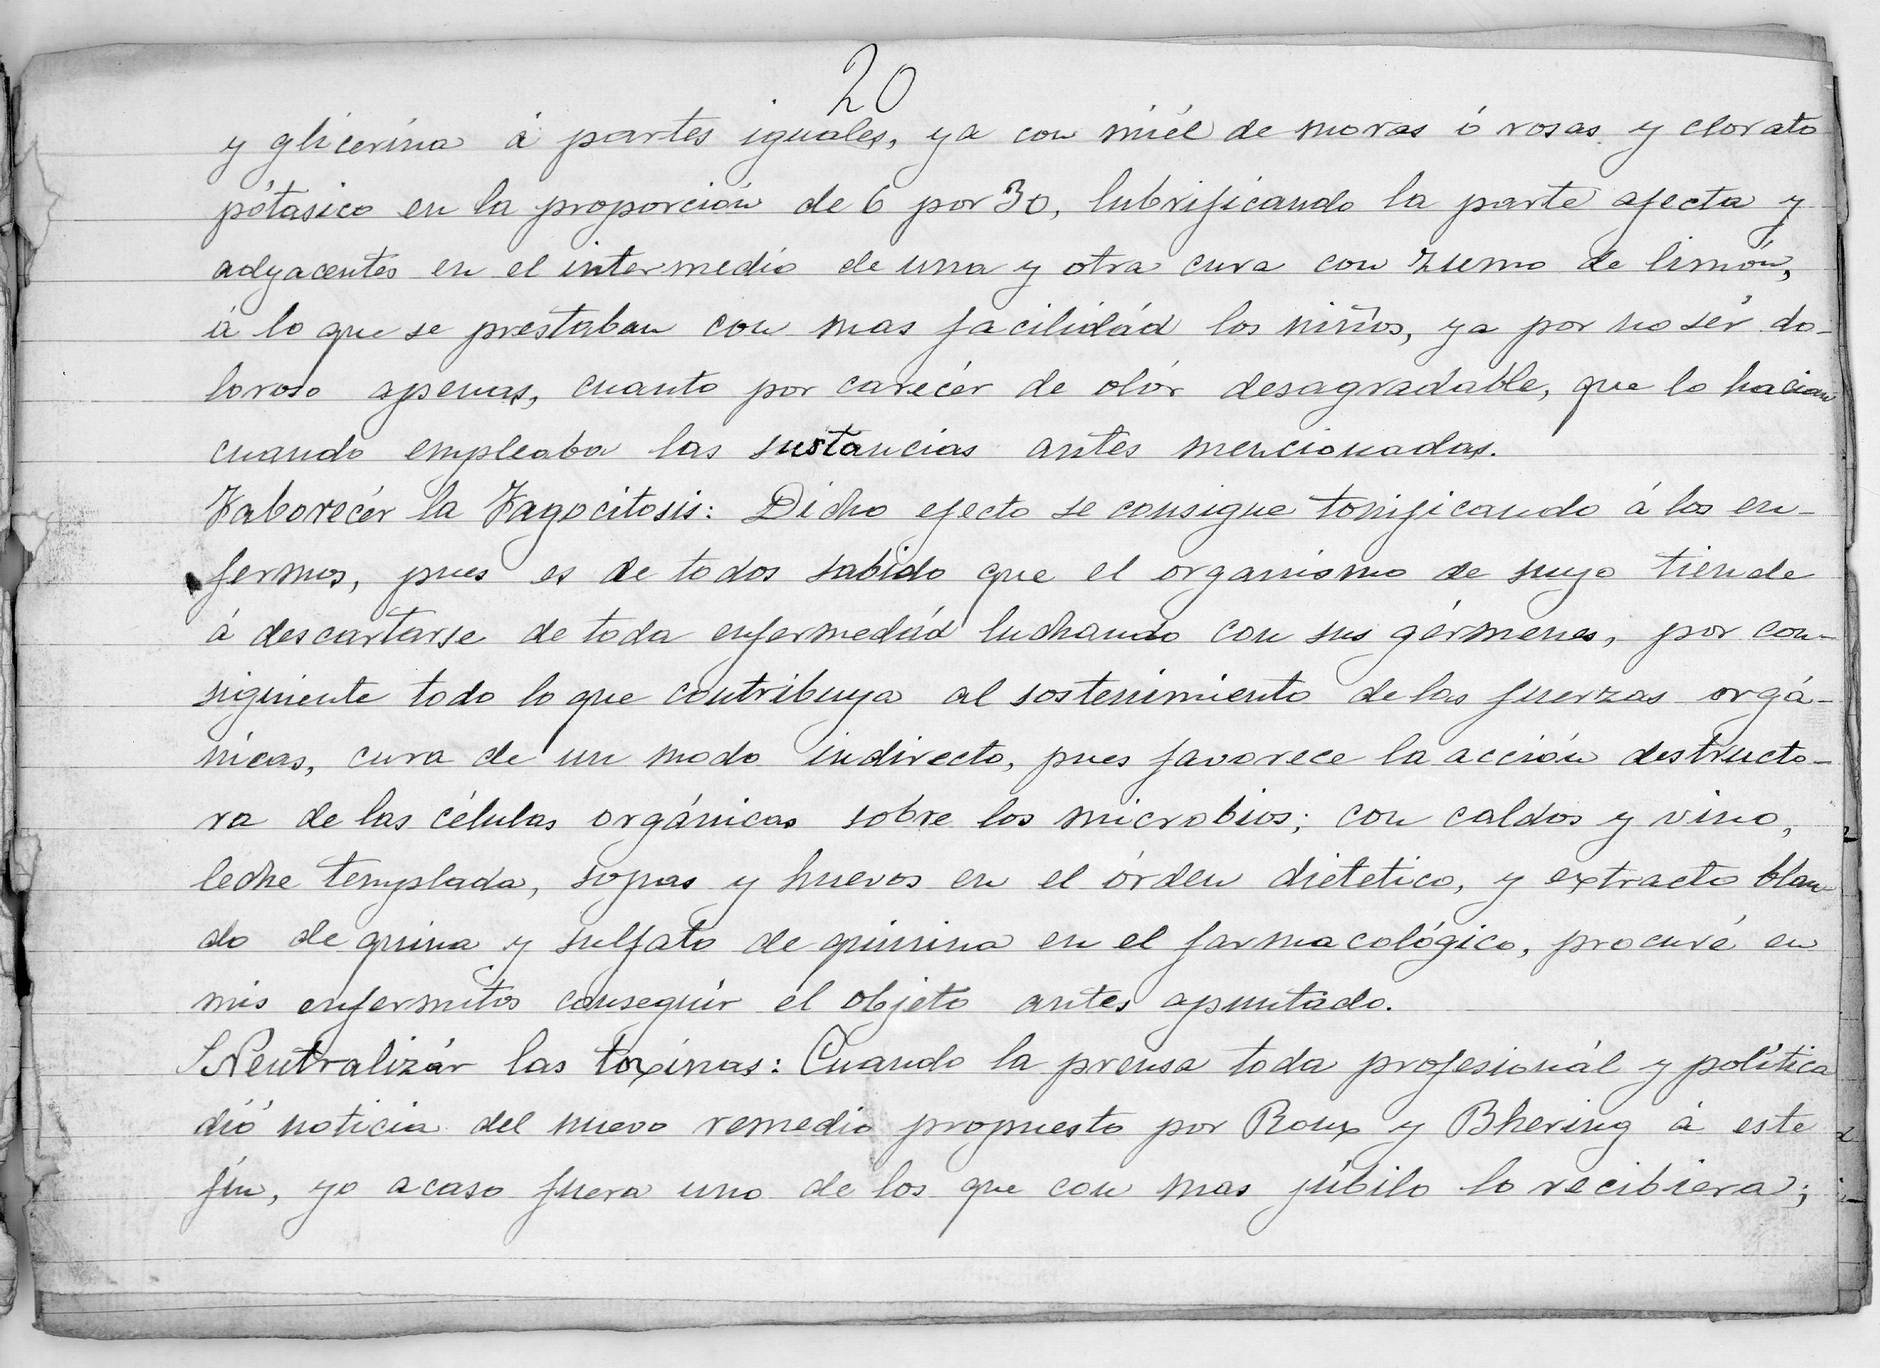 20
y glicerina á partes iguales, ya con miél de moras ó rosas y clorato
pótasico en la proporción de 6 por 30, lubrificando la parte afecta y
adyacentes en el intermedio de una y otra cura con zumo de limón,
á lo que se prestaban con mas facilidád los niños, ya por no sér do-
loroso apenas, cuanto por carecér de olór desagradable, que lo hacian
cuando empleaba las sustancias antes mencionadas.
Faborecér la Fagocitosis: Dicho efecto se consigue tonificando á los en-
fermos, pues es de todos sabido que el organismo de suyo tiende
á descartarse de toda enfermedád luchando con sus gérmenes, por con-
siguiente todo lo que contribuya al sostenimiento de las fuerzas orgá-
nicas, cura de un modo indirecto, pues favorece la acción destructo-
ra de las células orgánicas sobre los microbios; con caldos y vino,
leche templada, sopas y huevos en el órden dietetico, y extracto blan-
do de quina y sulfato de quinina en el farmacológico, procuré en
mis enfermitos conseguír el objeto antes apuntado.
Neutralizár las toxinas: Cuando la prensa toda profesionál y política
dió noticia del nuevo remedio propuesto por Roux y Bhering á este
fin, yo acaso fuera uno de los que con mas júbilo lo recibiera;